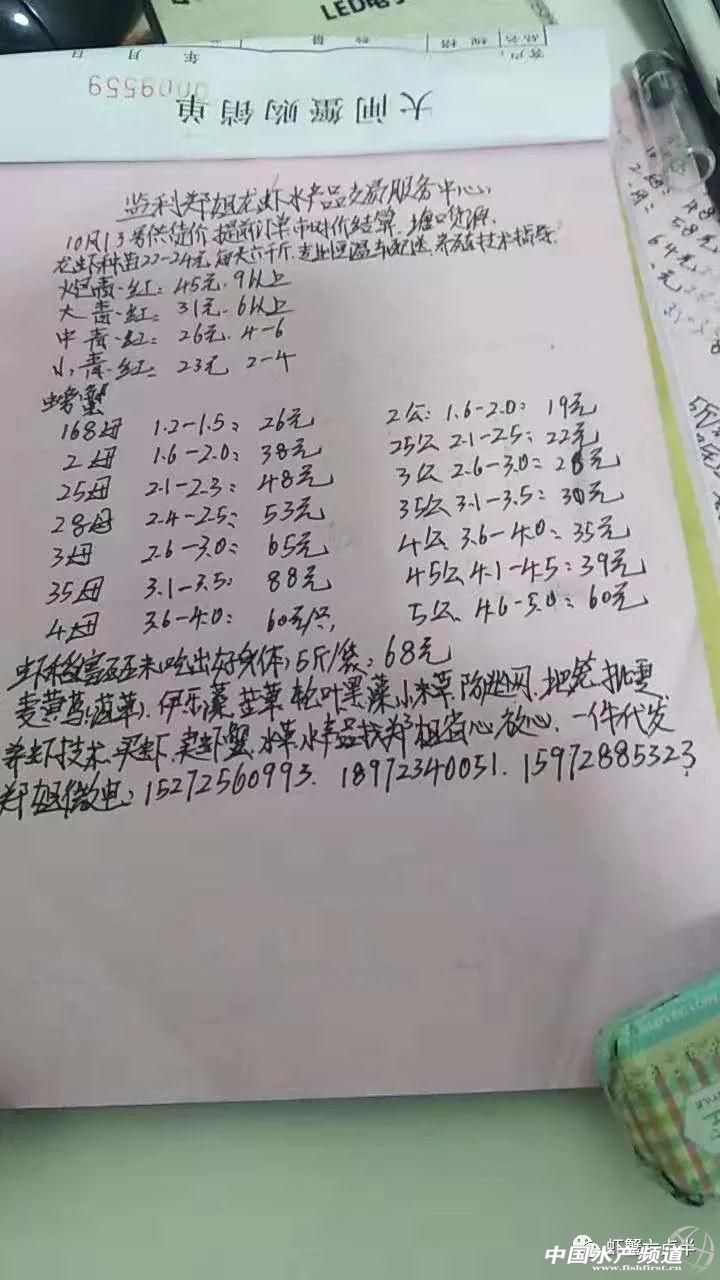 LED
客户：
品名 规格
数量
年 月 日
0009559
大闸蟹购销单
监利郑姐龙虾水产品交易服务中心
10月13号供货价 提前订单 市时价结算. 塘口货源.
龙虾种苗22-24元 每天六千斤. 专业恒温车配送. 养殖技术指导
炮青.红: 45元. 9以上
大青.红: 31元. 6以上
中青.红: 26元. 4-6
小青.红: 23元 2-4
螃蟹
168母 1.2-1.5: 26元
2母 1.6-2.0: 38元
25母 2.1-2.3: 48元
28母 2.4-2.5: 53元
3母 2.6-3.0: 65元
35母 3.1-3.5: 88元
4母 3.6-4.0: 60元/只
2公: 1.6-2.0: 19元
25公 2.1-2.5: 22元
3公 2.6-3.0: 28元
35公 3.1-3.5: 30元
4公 3.6-4.0: 35元
45公 4.1-4.5: 39元
5公 4.6-5.0: 60元
虾稻富硒玉米(吃出好身体) 5斤/袋: 68元
麦黄草(菹草). 伊乐藻. 苦草. 轮叶黑藻. 小米草. 防逃网. 地笼. 批零
养虾技术. 买虾. 卖虾蟹. 水草. 水产品找郑姐省心放心. 一件代发
郑姐微电: 15272560993. 18972340051. 15972885323
虾蟹六点半
中国水产频道
www.fishfirst.cn